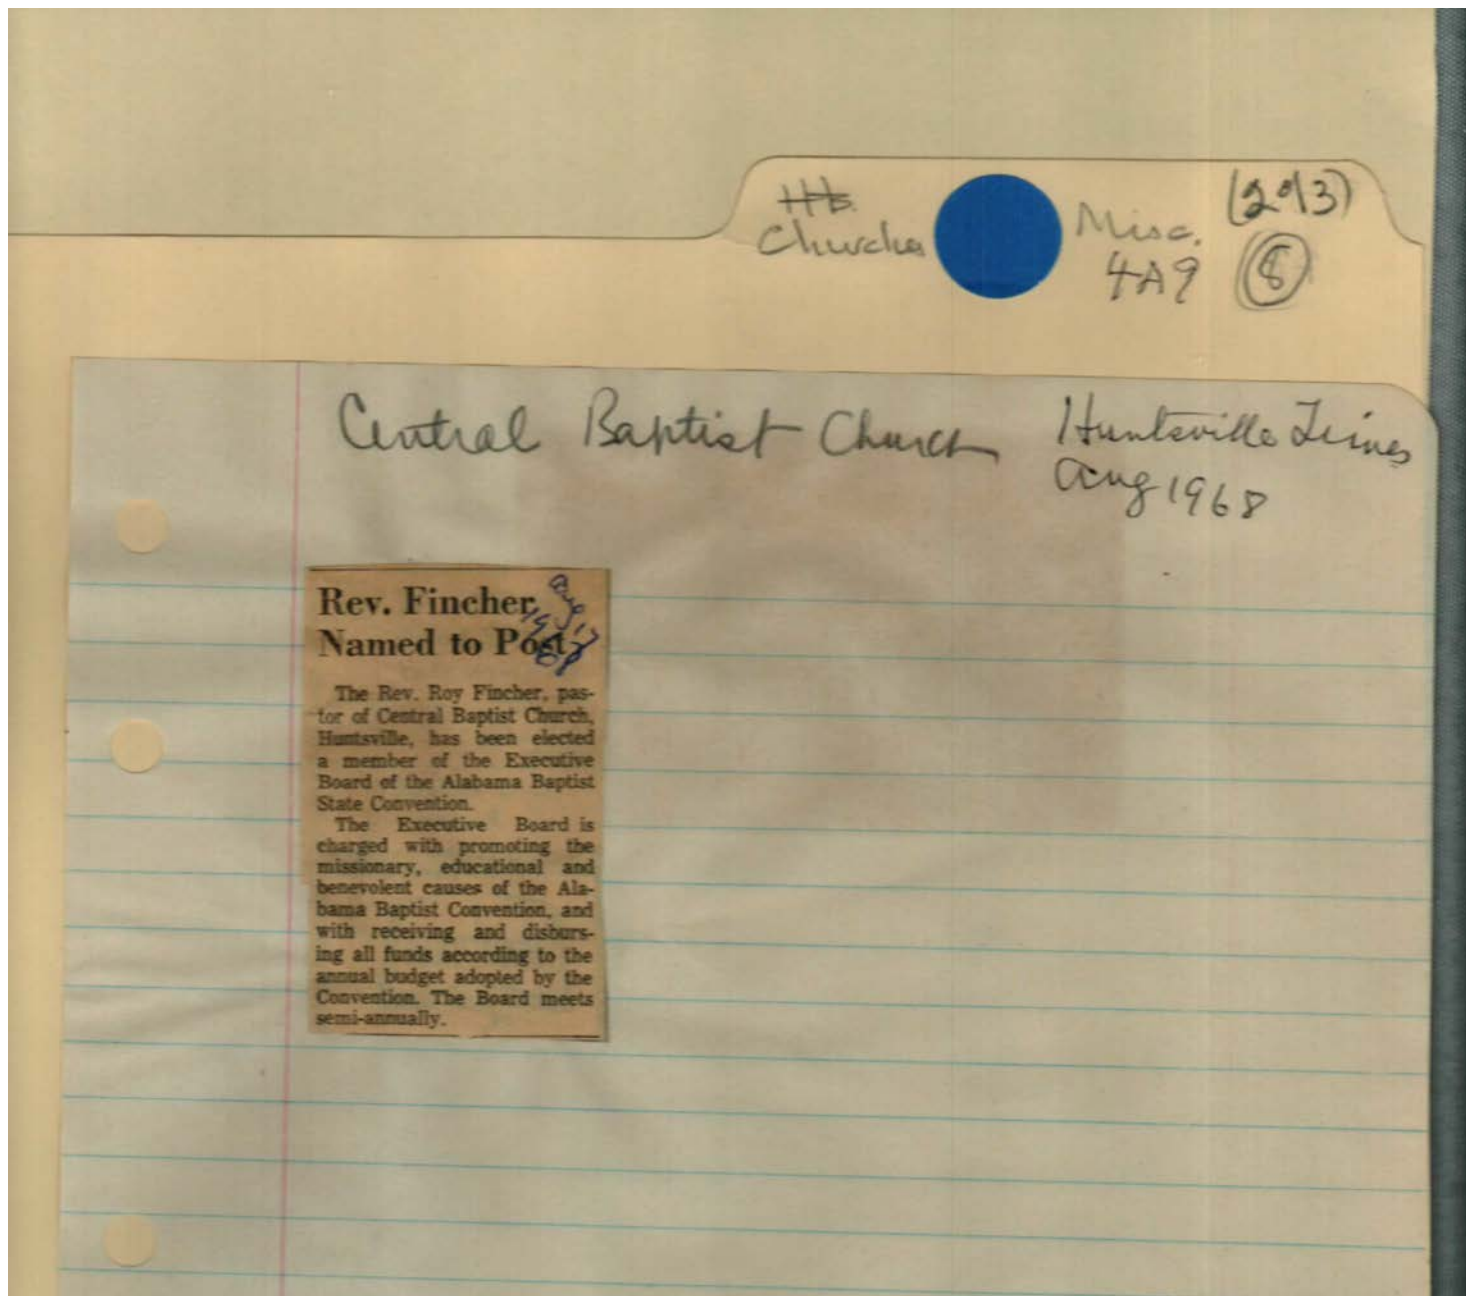 (2 of 3)
Misc.
Churches
4A9
8
Central Baptist Church
Huntsville Times
Aug 1968
Aug 17
1968
Rev. Fincher
Named to Post
The Rev. Roy Fincher, pas-
tor of Central Baptist Church,
Huntsville, has been elected
a member of the Executive
Board of the Alabama Baptist
State Convention.
The Executive Board is
charged with promoting the
missionary, educational and
benevolent causes of the Ala-
bama Baptist Convention, and
with receiving and disburs-
ing all funds according to the
annual budget adopted by the
Convention. The Board meets
semi-annually.